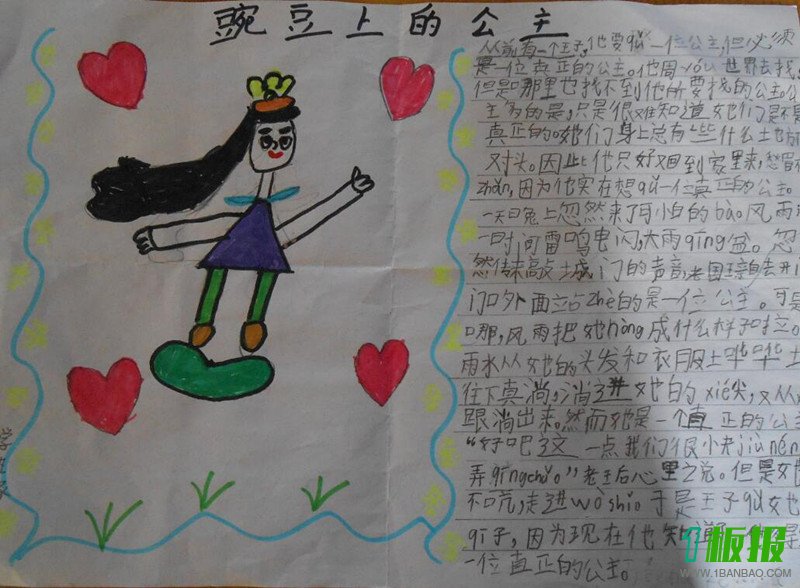 豌豆上的公主
从前有一个王子,他要qǔ一位公主,但必须
是一位真正的公主。他周yóu世界去找,
但是哪里也找不到他所要找的公主。公
主多的是,只是很难知道她们是不是
真正的。她们身上总有些什么土也方
又寸头。因此他只好又回到家里来,
zhàn,因为他实在想qǔ一位真正的公主。
一天日免上忽然来了可怕的bào风雨
一时间雷鸣电闪,大雨qīng盆。忽
然传来敲土城门的声音,老国王亲自去开
门。门外面立占zhè的是一位公主。可是
口那,风雨把她nòng成什么样子拉。
雨水从她的头发和衣服上哗哗土
往下直淌,淌进她的xié尖,又从
跟淌出来。然而她是一个真正的公主
“好吧这一点我们很小夬jiù néng
弄qīngchǔo”老王后心里之说。但是女也
不吭,走进wò shìo于是王子qǔ她
qī子,因为现在他知道
一位真正的公主。
1板报
WWW.1BANBAO.COM